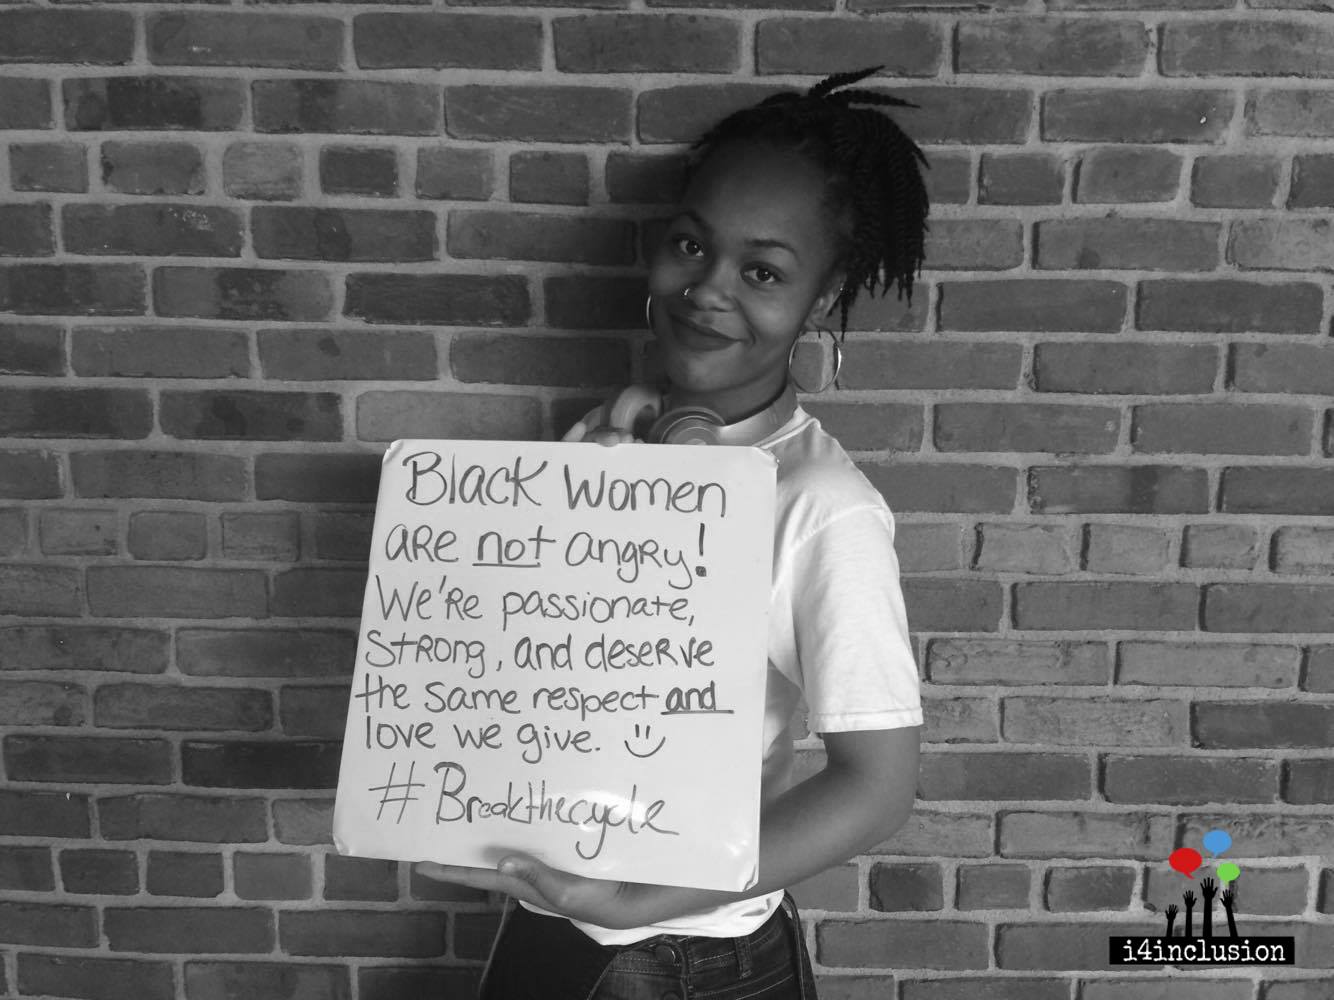 Black Women
are not angry!
We're passionate,
strong, and deserve
the same respect and
love we give. :)
#Breakthecycle
i4inclusion